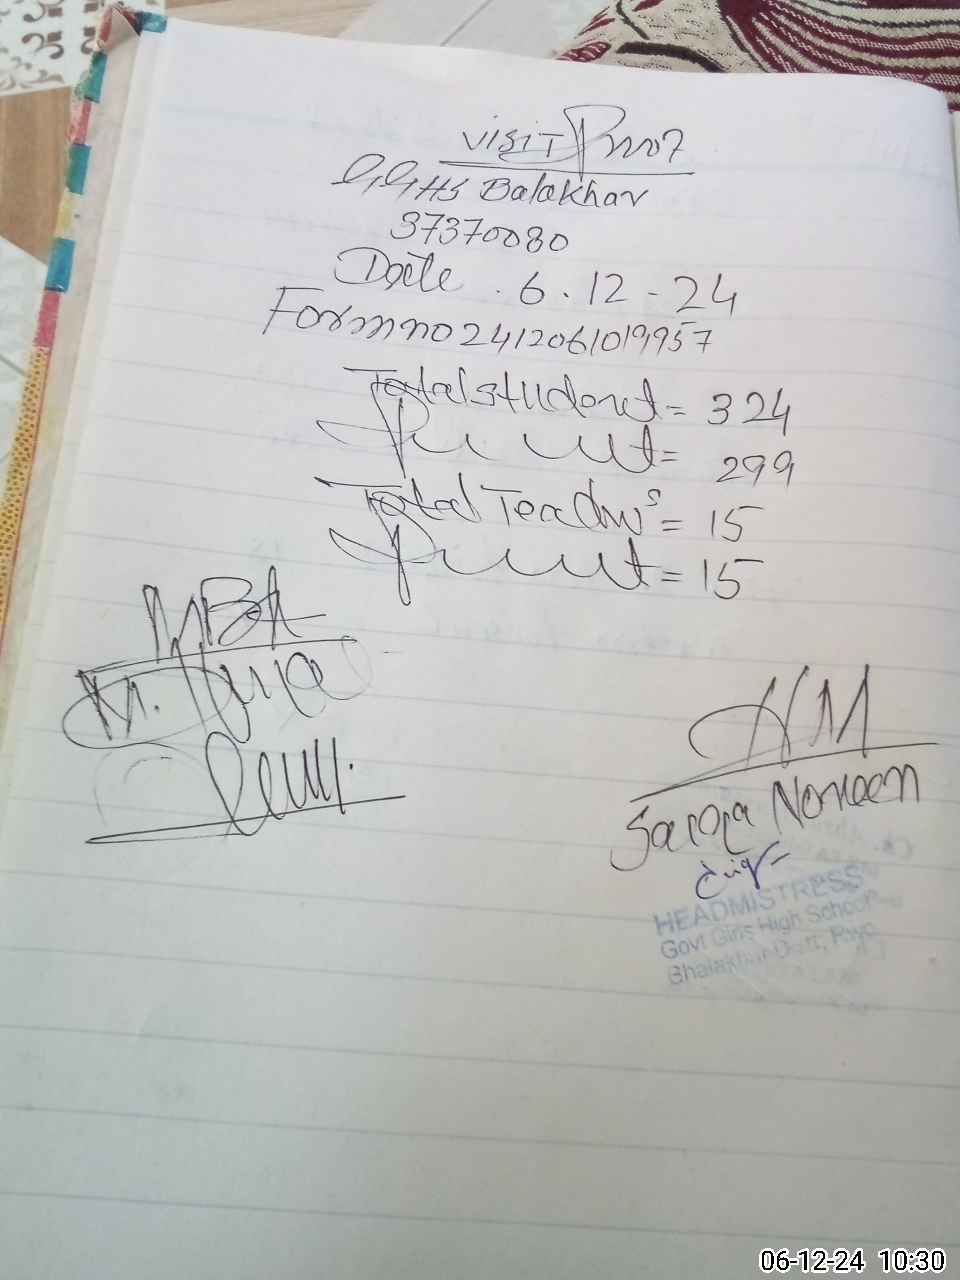 VISIT Proof
GGHS Balakhar
37370080
Date . 6 . 12 - 24
Form no 2412061019957
Total student = 324
Present = 299
Total Teachers = 15
Present = 15
MEA
M.
HM
Saiqa Noreen
HEADMISTRESS
Govt Girls High School
Bhalakhar Distt,
06-12-24 10:30